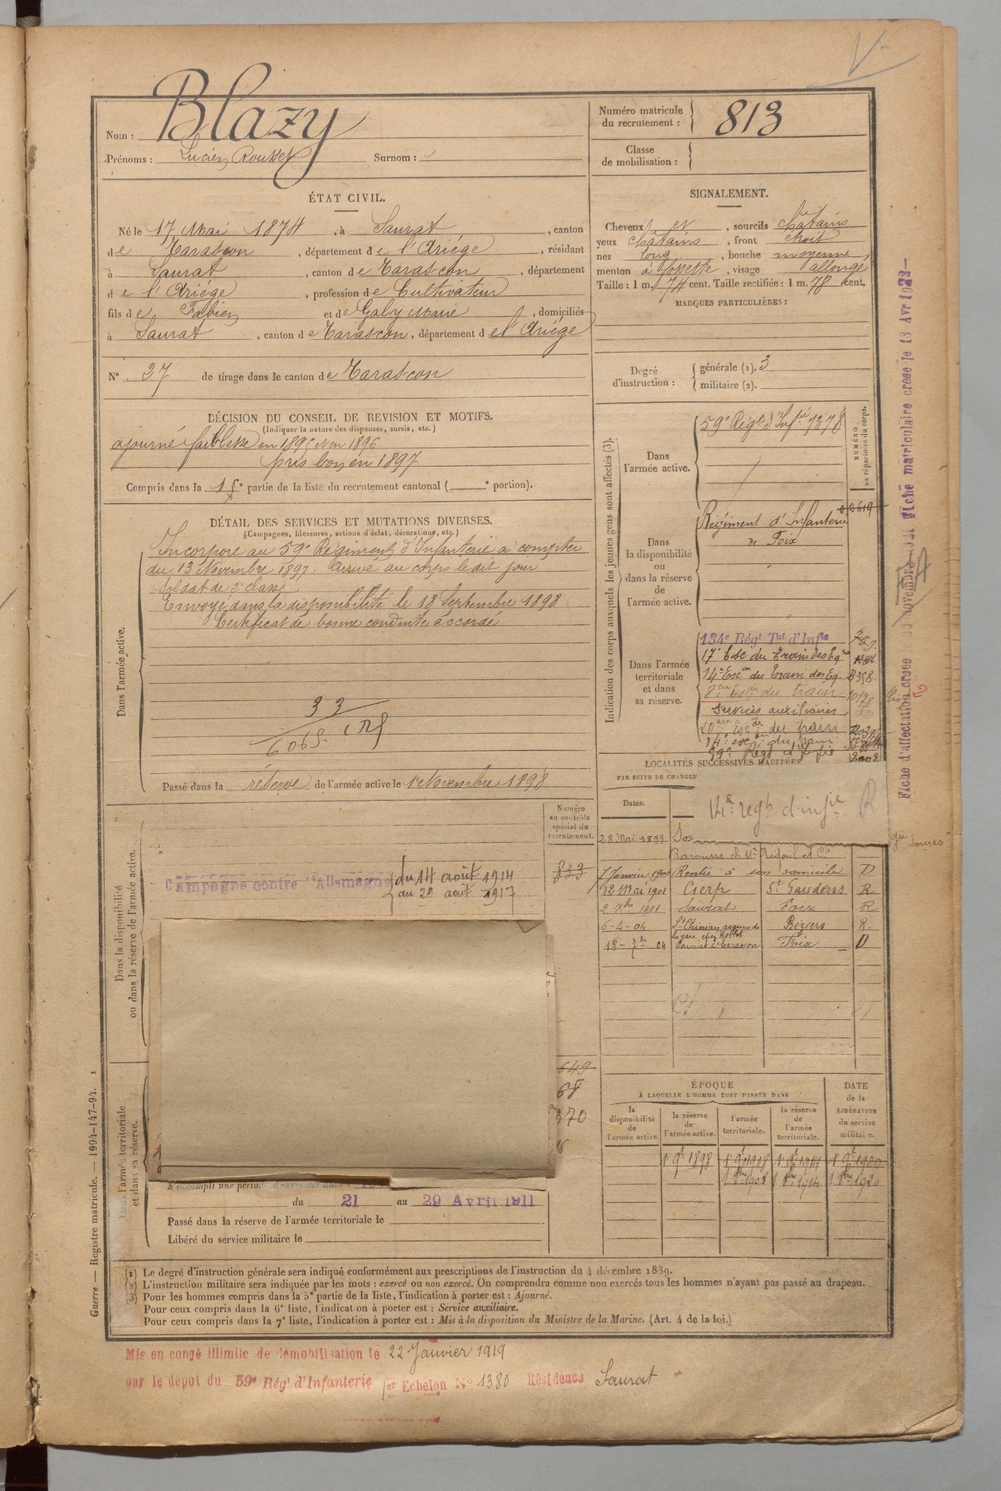 Nom : Blazy
Prénoms : Lucien Rousset Surnom :
Numéro matricule du recrutement : 813
Classe de mobilisation :
ÉTAT CIVIL.
Né le 17 Mai 1874, à Saurat, canton
de Tarascon, département de l'Ariège, résidant
à Saurat, canton de Tarascon, département
de l'Ariège, profession de Cultivateur
fils de Fabien et de Galy Marie, domiciliés
à Saurat, canton de Tarascon, département de l'Ariège
N° 27 de tirage dans le canton de Tarascon
DÉCISION DU CONSEIL DE REVISION ET MOTIFS.
(Indiquer la nature des dispenses, sursis, etc.)
ajourné faiblesse en 1895 et en 1896
pris bon en 1897
Compris dans la 1re partie de la liste du recrutement cantonal ( e portion).
DÉTAIL DES SERVICES ET MUTATIONS DIVERSES.
(Campagnes, blessures, actions d'éclat, décorations, etc.)
Dans l'armée active.
Incorporé au 59e Régiment d'Infanterie à compter
du 13 Novembre 1897. Arrivé au corps le dit jour
Soldat de 2e classe
Envoyé dans la disponibilité le 18 Septembre 1898
Certificat de bonne conduite accordé
33
6065
Passé dans la réserve de l'armée active le 1er Novembre 1898
Numéro au contrôle spécial du recrutement.
833
Dans la disponibilité ou dans la réserve de l'armée active.
Campagne contre l'Allemagne du 14 août 1914
au 2 août 1917
649
68
370
l'armée territoriale et dans sa réserve.
A accompli une période
du 21 au 29 Avril 1911
Passé dans la réserve de l'armée territoriale le
Libéré du service militaire le
SIGNALEMENT.
Cheveux et, sourcils châtains
yeux châtains, front étroit
nez long, bouche moyenne
menton à fossette, visage allongé
Taille : 1 m. 74 cent. Taille rectifiée : 1 m. 78 cent.
MARQUES PARTICULIÈRES :
Degré d'instruction : générale (1). 3
militaire (2).
Indication des corps auxquels les jeunes gens sont affectés (3).
NUMÉRO au répertoire du corps.
Dans l'armée active.
59e Régt d'Infie 7378
Dans la disponibilité ou dans la réserve de l'armée active.
Régiment d'Infanterie
de Foix
Dans l'armée territoriale et dans sa réserve.
134e Régt Tal d'Infie
17e Esc du Train des Eq
14e Escon du Train des Eq. 8358
8e Escon du train
Services auxiliaires
20e esc du train
14e esc du train
59e Régt d'Infie
LOCALITÉS SUCCESSIVES HABITÉES
PAR SUITE DE CHANGE
Dates.
regt d'infie R
28 Mai 1899
Barousse
1 Janvier 1900 Rentré à son domicile D
12 Mai 1901 Cierp St Gaudens R
2 Xbre 1901 Saurat Foix R
6-4-04 St Chinian Béziers R.
18-7-04 Foix D
ÉPOQUE
À LAQUELLE L'HOMME DOIT PASSER DANS
la disponibilité de l'armée active.
la réserve de l'armée active.
l'armée territoriale.
la réserve de l'armée territoriale.
DATE de la LIBÉRATION du service militaire.
1er 9bre 1898
Fiche matriculaire créée le 18 Avr 1922
Fiche d'affectation créée le
Guerre — Registre matricule. — 1994-147-94.
(1) Le degré d'instruction générale sera indiqué conformément aux prescriptions de l'instruction du 4 décembre 1889.
(2) L'instruction militaire sera indiquée par les mots : exercé ou non exercé. On comprendra comme non exercés tous les hommes n'ayant pas passé au drapeau.
(3) Pour les hommes compris dans la 5e partie de la liste, l'indication à porter est : Ajourné.
Pour ceux compris dans la 6e liste, l'indication à porter est : Service auxiliaire.
Pour ceux compris dans la 7e liste, l'indication à porter est : Mis à la disposition du Ministre de la Marine. (Art. 4 de la loi.)
Mis en congé illimité de démobilisation le 22 Janvier 1919
par le dépôt du 59e Régt d'Infanterie 1er Echelon N° 1380 Résidence Saurat